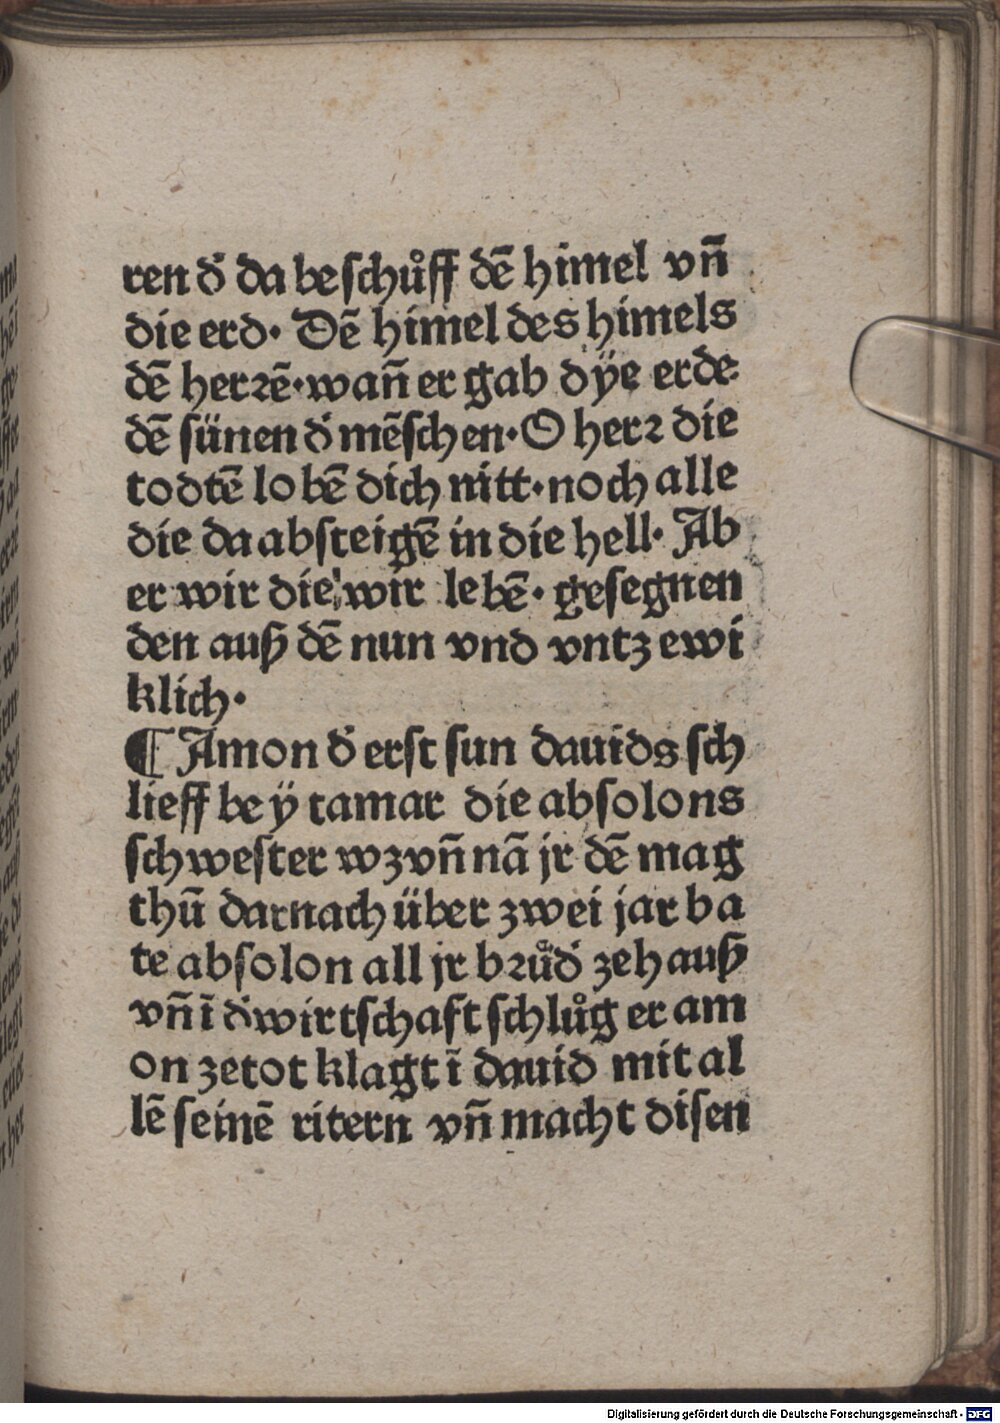 ren d̕ da beschůff dē himel vñ
die erd· Dē himel des himels
dē herrē·wañ er gab dÿe erde·
dē sünen d̕ mēschen·O herr die
todtē lobē dich nitt·noch alle
die da absteigē in die hell· Ab
er wir die wir lebē· gesegnen
den auß dē nun vnd vntz ewi
klich·
¶ Amon d̕ erst sun dauids sch
lieff beÿ tamar die absolons
schwester wz vñ nā jr dē mag
thū darnach über zwei jar ba
te absolon all jr brůd̕ zehauß
vñ ī d̕ wirtschaft schlůg er am
on zetot klagt ī dauid mit al
lē seinē ritern vñ macht disen
Digitalisierung gefördert durch die Deutsche Forschungsgemeinschaft - DFG